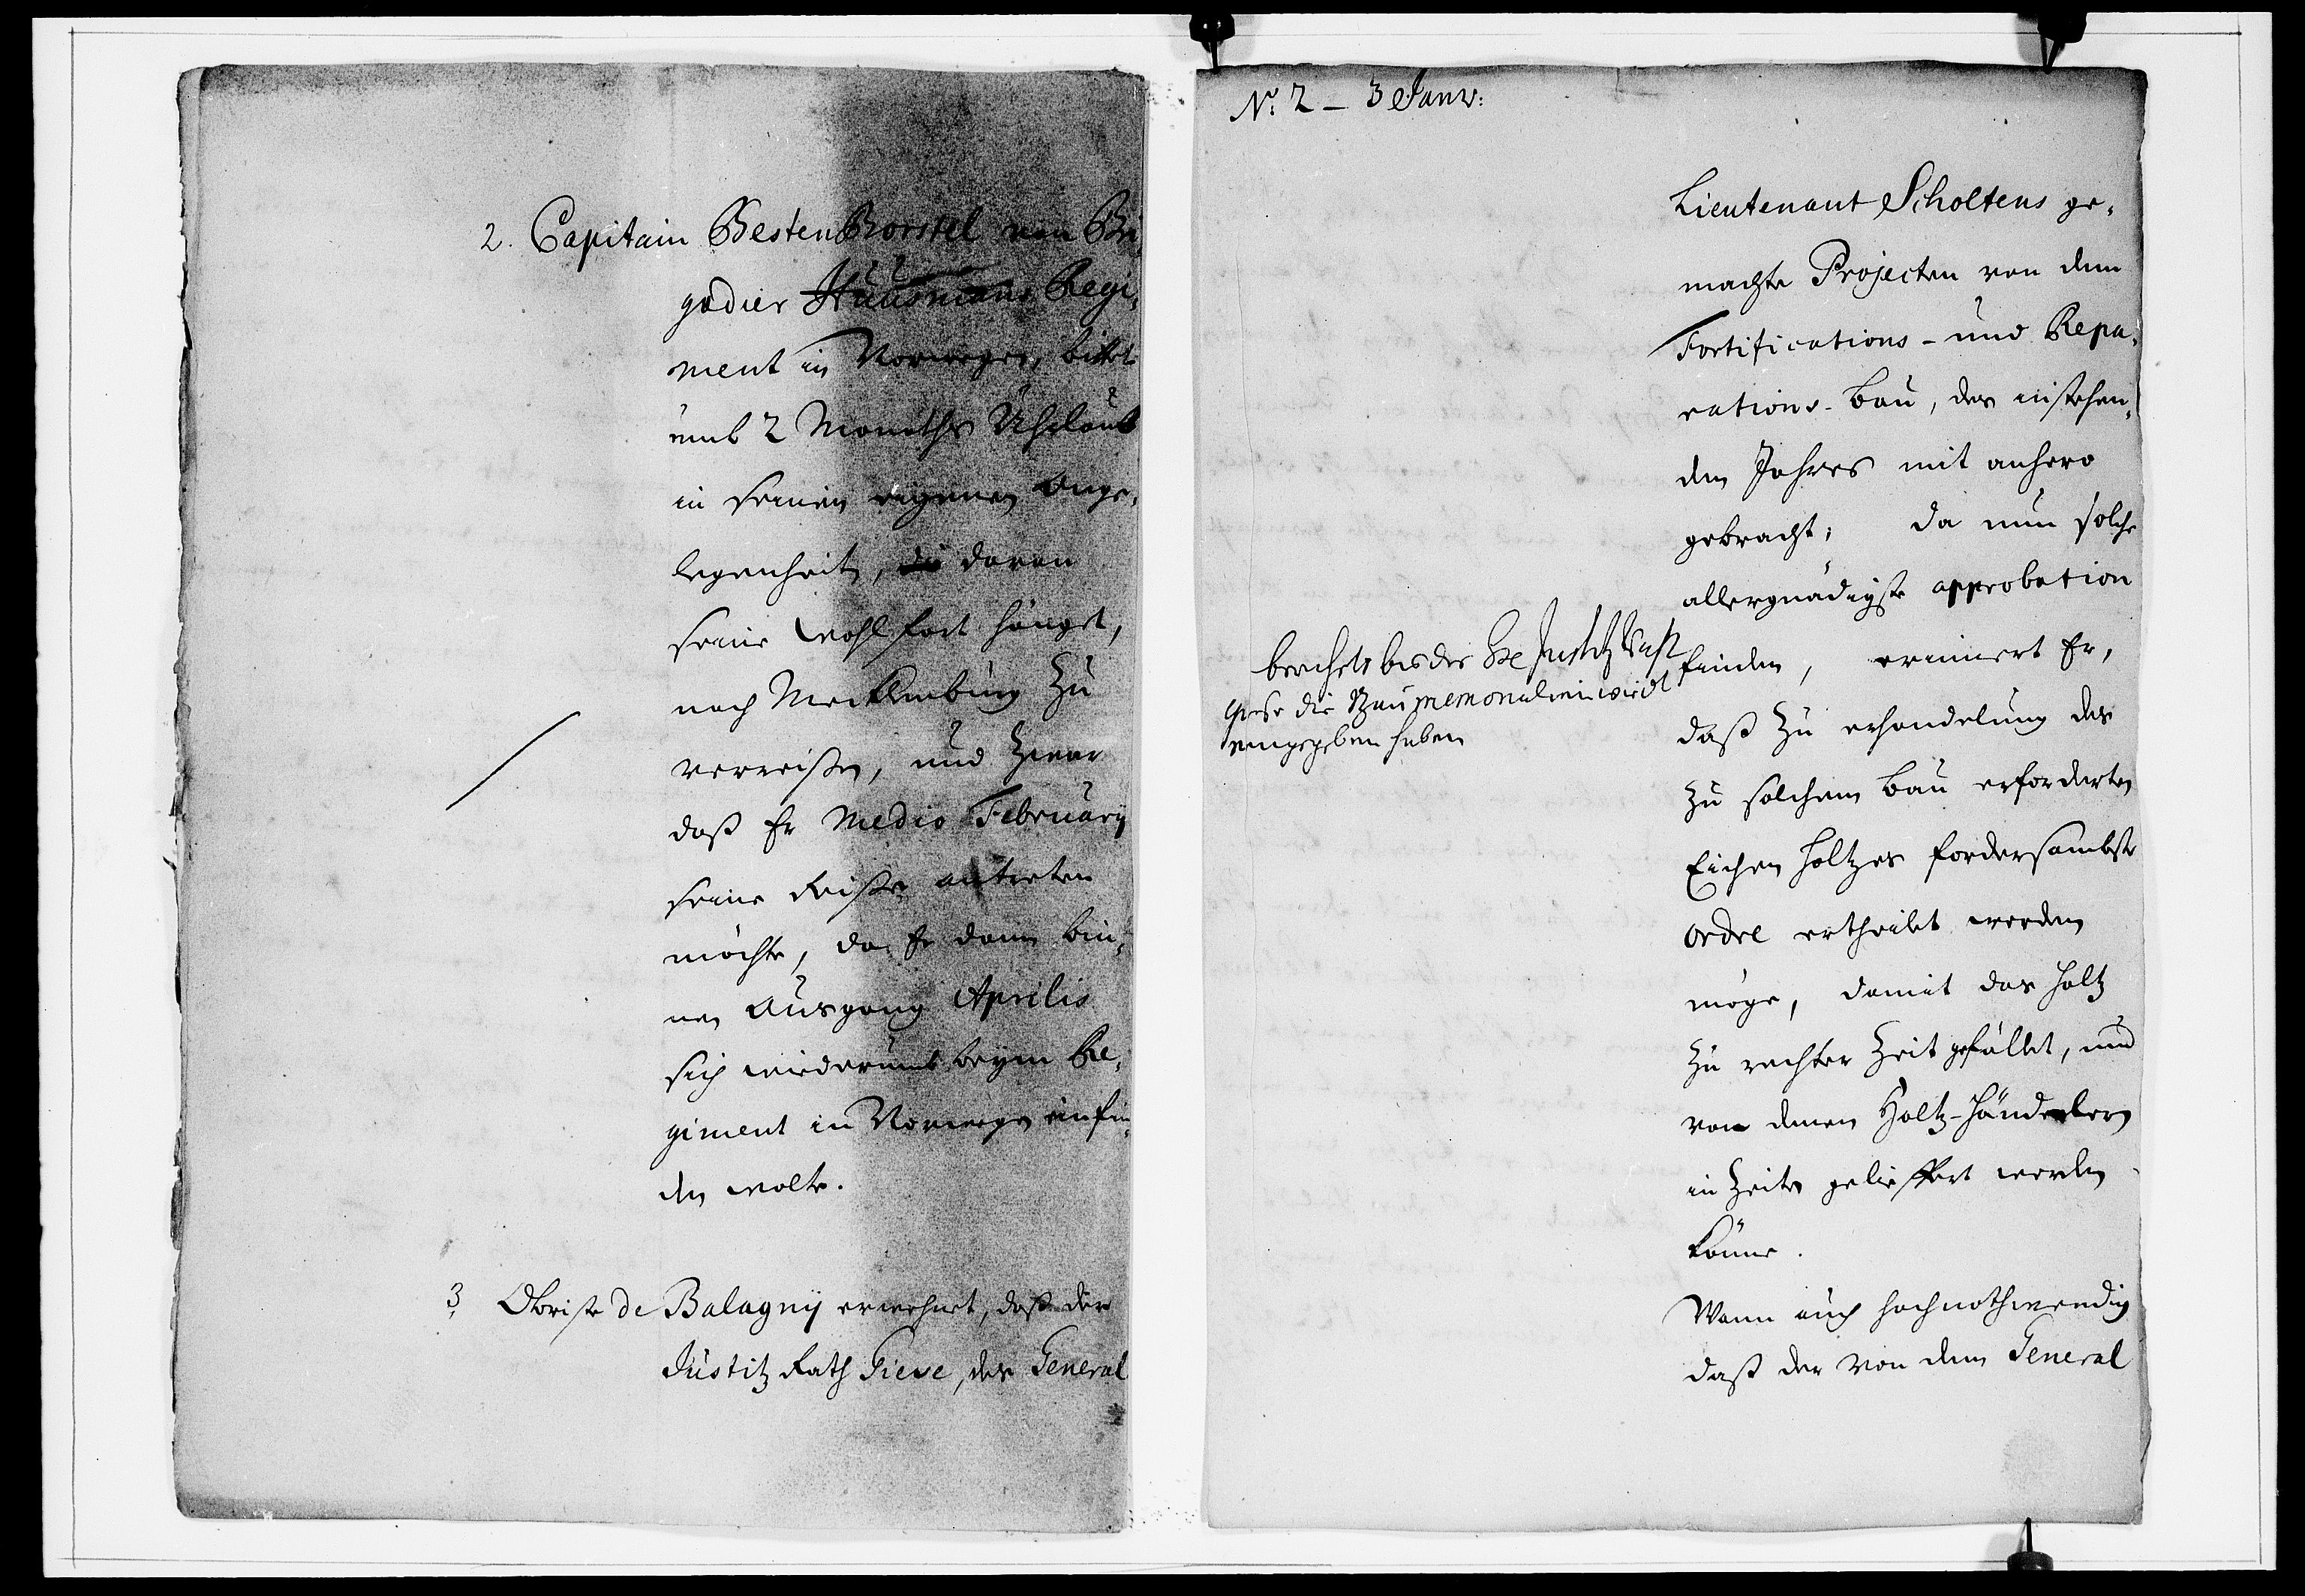 2. Capitain BestenBorstel von Bri
gadier Huusmans Regi,
ment in Norwegen, bittet
umb 2 Monaths Uhrlaub
in seinen eigenen Ange,
legenheit, daran
seine Wohlfart hänget,
nach Mecklenburg zu
verreißen, und zwar
daß Er Medio Februarij
seine Reiße antreten
möchte, da Er dann bin,
nen Ausgang Aprilis
sich wiederumb beym Re,
giment in Norwegen einfin,
den wolte.
3. Obriste de Balagnij erwehnet, daß der
Justitz Rath Giese, des General
No: 2 - 3 Janv:
Lieutenant Scholtens ge,
machte Projecten von dem
Fortifications- und Repa,
rations-Bau, des instehen,
den Jahres mit anhero
gebracht; da nun solche
allergnädigste approbation
finden, erinnert Er,
daß zu erhandelung des
zu solchem Bau erforderten
Eichen Holtzes fordersambste
Ordre ertheilet werden
möge, damit das Holtz
zu rechter Zeit gefället, und
von denen Holtz-Händelern
in Zeiten gelieffert werden
könne.
Wann auch hochnothwendig
daß der von dem General
beruhets bis der Justitz Raht
Giese die Bau memorialien wird
eingegeben haben